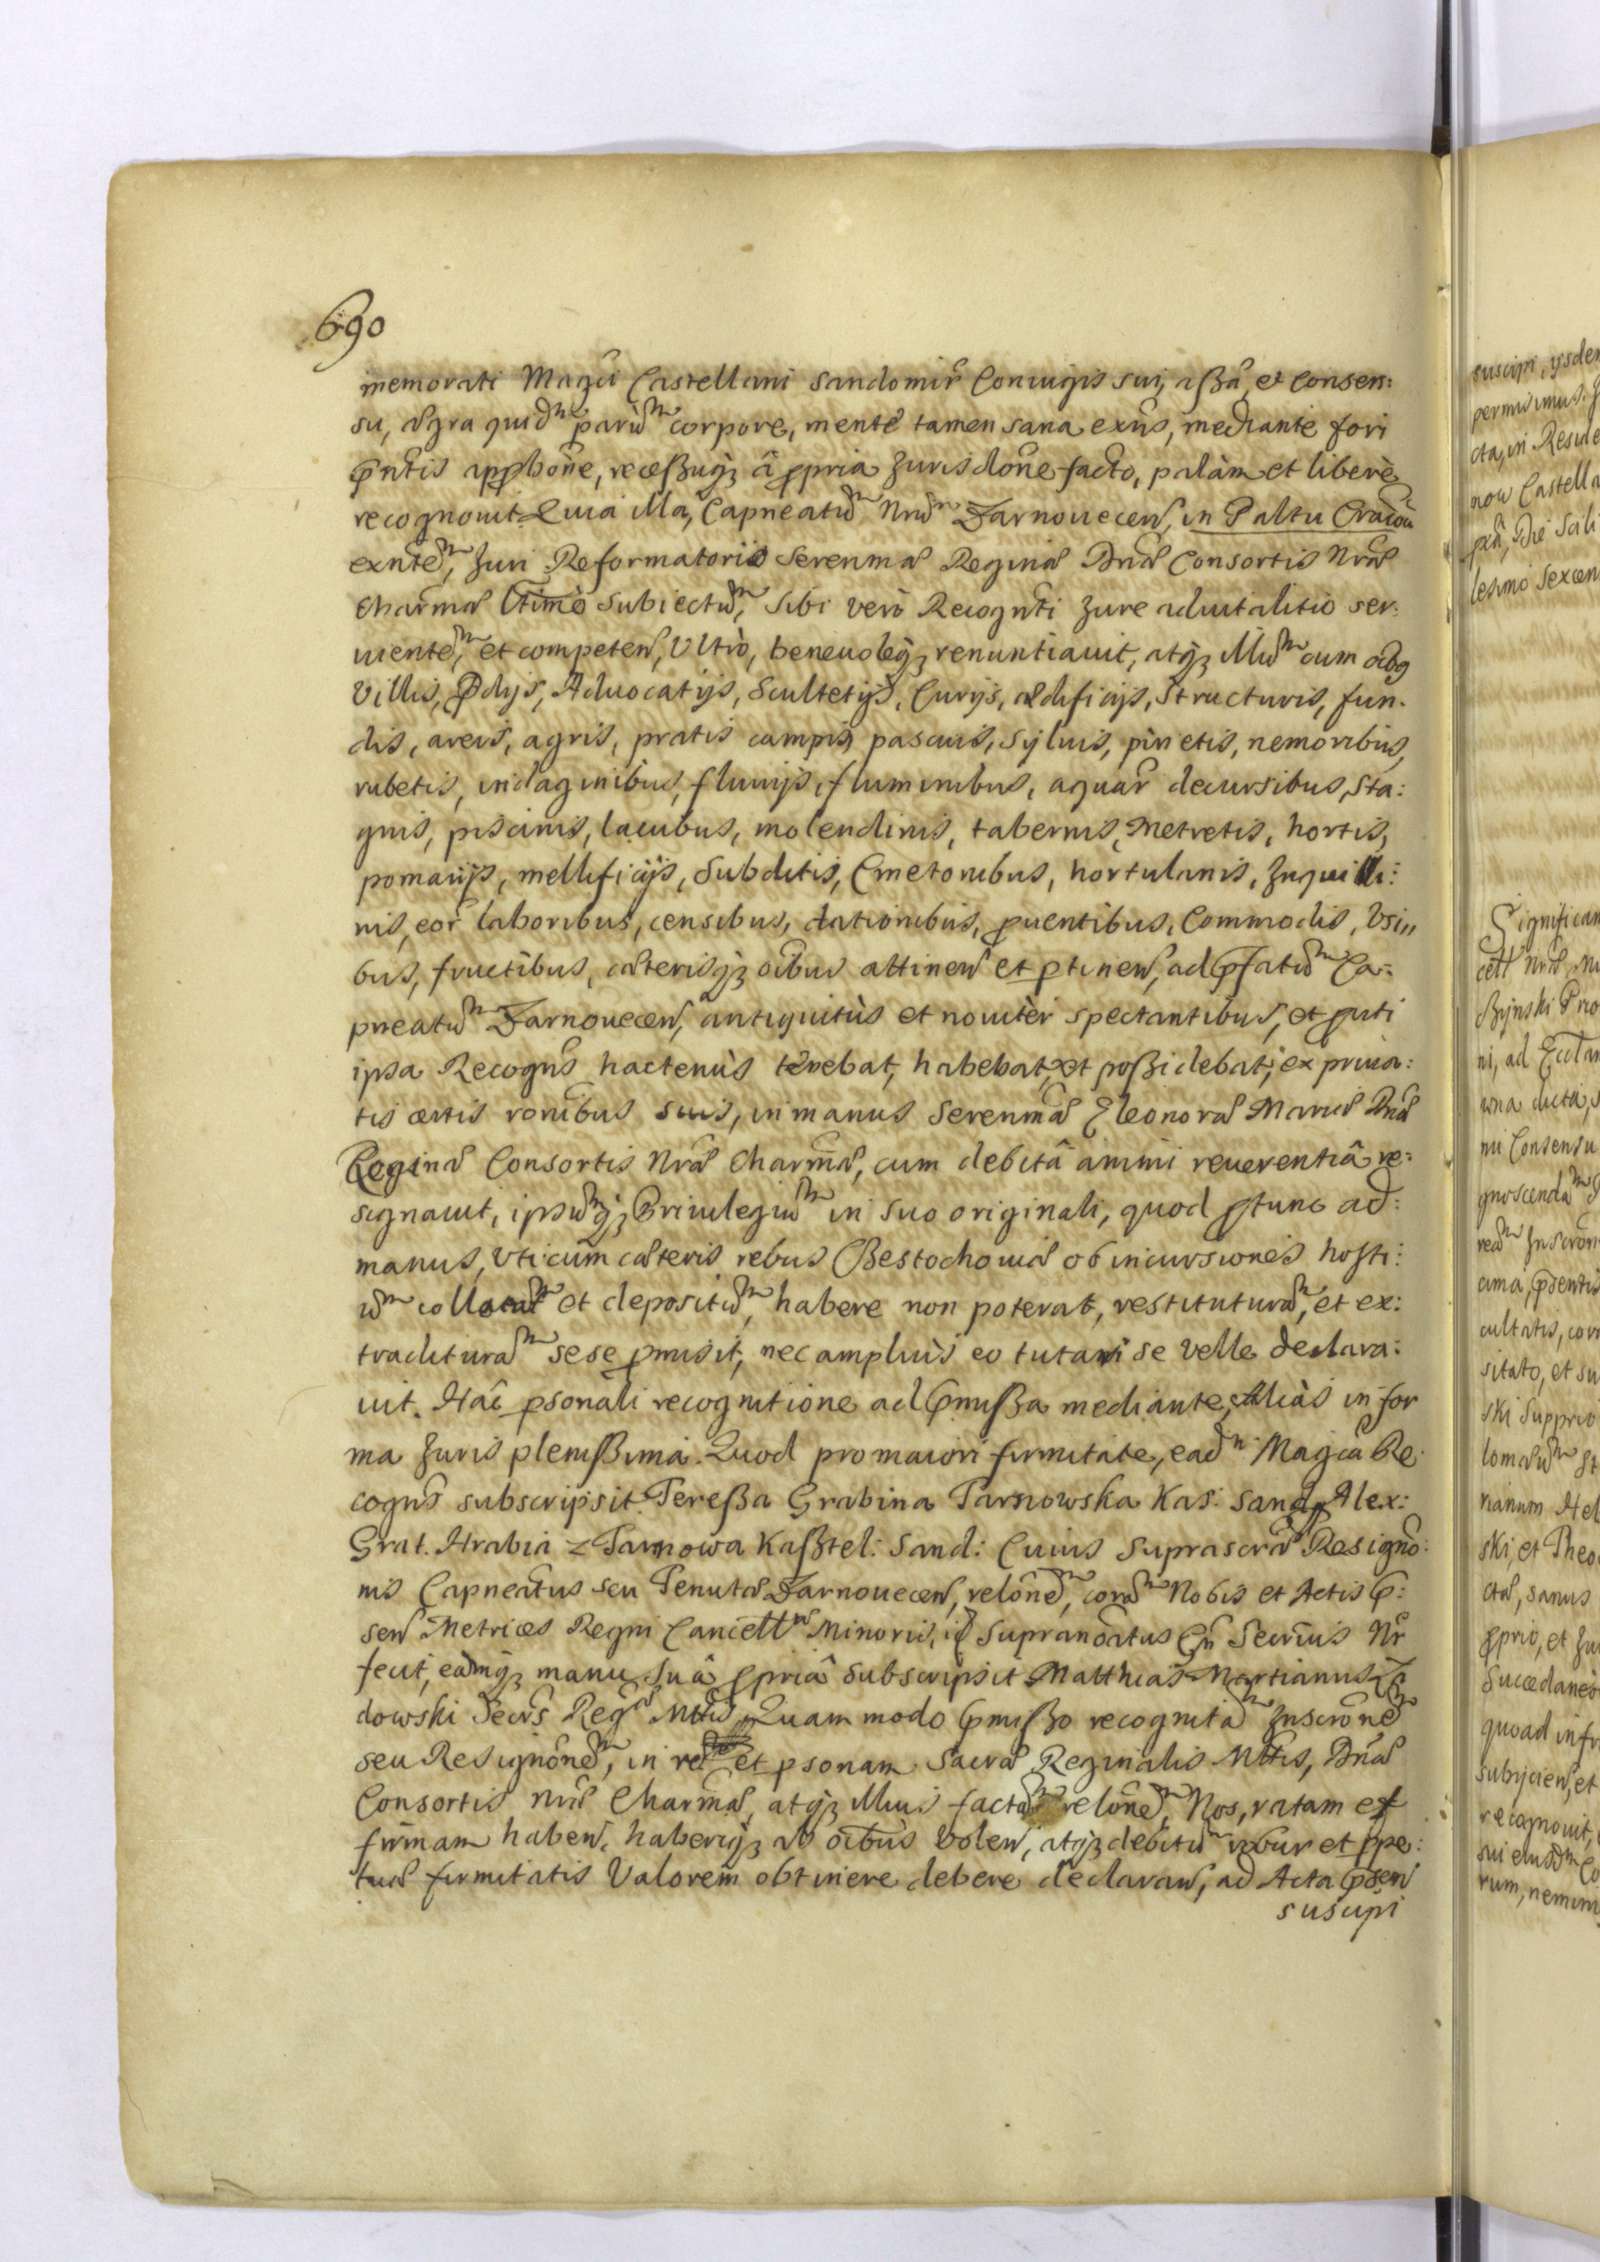 690
memorati Magci Castellani Sandomir Coniugis sui, aßa, et consen:
su, ægra quidm parum corpore, mente tamen sana exns, mediante fori
pntis appbone, recessuq; â ppria Jurisdone facto, palàm et liberè
recognouit. Quia illa, Capneatum Nrum Zarnouecen, in Paltu Cracou
exntem, Juri Reformatorio Serenmæ Reginæ Dnæ Consortis Nræ
Charmæ ltimè Subiectum, Sibi verò Recognti Jure aduitalitio ser:
uientem, et competen, Vltrò, beneuoleq; renuntiauit, atq; illum cum oibg
Villis, Pdijs, Aduocatijs, Scultetijs, Curijs, ædificijs, structuris, fun.
dis, areis, agris, pratis campis pascuis, syluis, pinetis, nemoribus,
rubetis, indaginibus, fluuijs, fluminibus, aquar decursibus, sta:
gnis, piscinis, lacubus, molendinis, tabernis, Metretis, hortis,
pomarijs, mellificijs, Subditis, Cmetonibus, hortulanis, Inquili:
nis, eor laboribus, censibus, dationibus, puentibus, Commodis, Vsi„
bus, fructibus, cæterisq; oibus attinen et ptinen, ad pfatum Ca:
pneatum Zarnouecen, antiquitùs et nouitèr spectantibus, et puti
ipsa Recogns hactenùs tenebat, habebat, et poßidebat, ex priua:
tis certis ronibus suis, in manus Serenmæ Eleonoræ Mariæ Dnæ
Reginæ Consortis Nræ Charmæ, cum debitâ animi reuerentiâ re:
signauit, ipsumq; Priuilegium in suo originali, quod ptunc ad:
manus, vti cum cæteris rebus Cßestochouiæ ob incursiones hosti:
um collocat et depositum, habere non poterat, restituturam, et ex:
traditturam sese pmisit, nec ampliùs eo tutari se velle declara:
uit. Hac psonali recognitione ad pmißa mediante, aliàs in for
ma Juris plenißima. Quod pro maiori firmitate, eadm Magca Re
cogns subscripsit. Tereßa Grabina Tarnowska Kas: Sand. Alex:
Grat. Hrabia z Tarnowa Kaßtel: Sand: Cuius Suprascræ Resigno:
nis Capneatus seu Tenutæ Zarnouecen, relonem, coram Nobis et Actis p:
sen Metrices Regni Cancell Minoris, id Supranoatus Gn Secrius Nr
fecit, eamq; manu suâ ppriâ subscripsit Matthias Martianus Ła
dowski Secrs Reg Mttis. Quam modo pmißo recognitam Inscronem
seu Resignonem, in rem et psonam Sacræ Reginalis Mttis, Dnæ
Consortis nræ Charmæ, atq; illius factam relonem, Nos, ratam et
firmam haben, haberiq; ab oibus volen, atq; debitum robur et ppe:
tuæ firmitatis Valorem obtinere debere declaran, ad Acta psen
suscipi